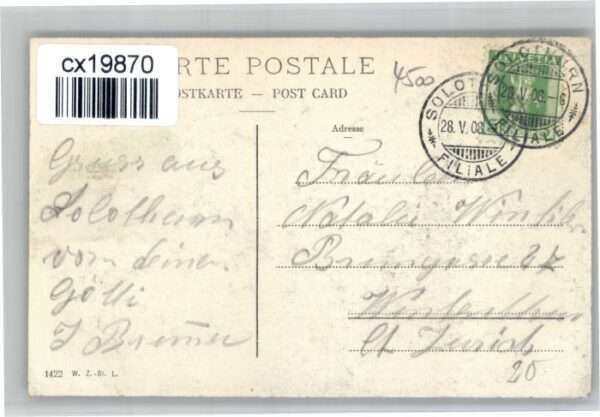 cx19870
CARTE POSTALE
POSTKARTE — POST CARD
4500
SOLOTHURN
28. V. 08.
FILIALE
SOLOTHURN
28. V. 08.
FILIALE
Adresse
Gruss aus
Solothurn
von deinem
Götti
J Brunner
Fräulein
Natalie
Brunngasse 27
Winterthur
Ct Zürich
20
1422 W. Z.-St. L.